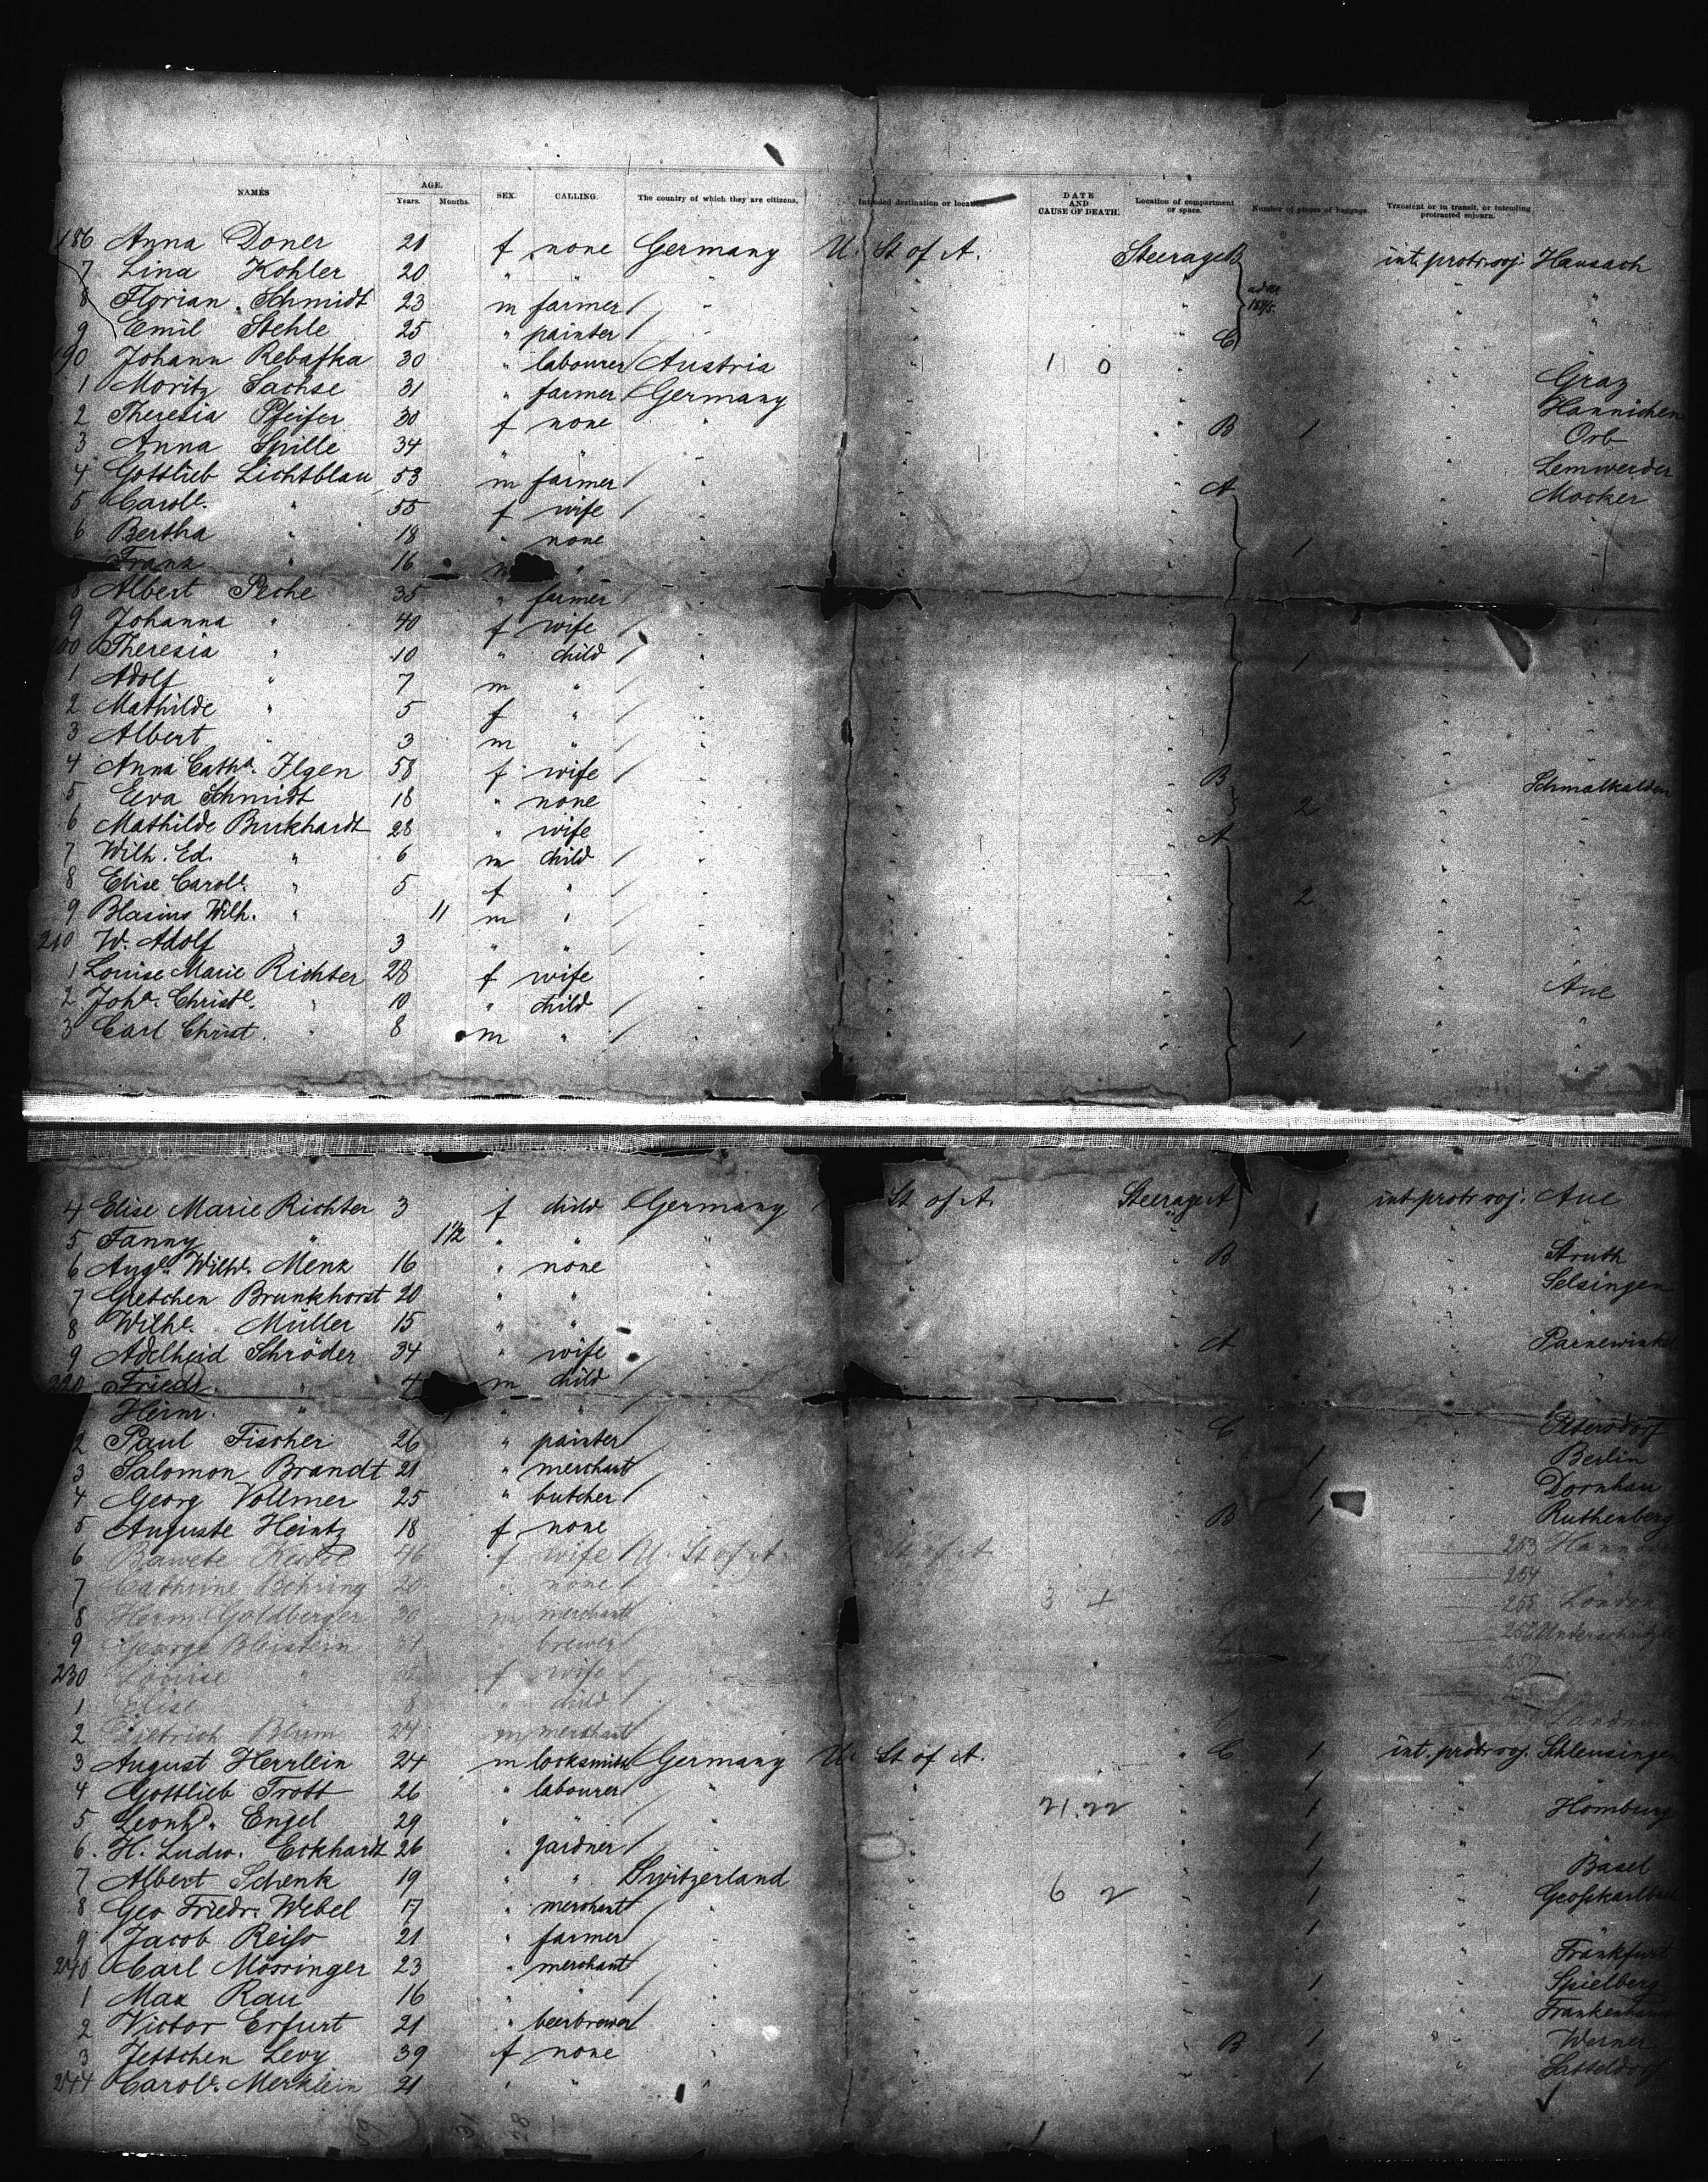 NAMES AGE. Years. Months. SEX. CALLING. The country of which they are citizens. Intended destination or location. DATE AND CAUSE OF DEATH. Location of compartment or space. Number of pieces of baggage. Transient or in transit, or intending protracted sojourn.
186 Anna Doner 21 f none Germany U. St of A. Steerage B int. protr. soj. Hausach
7 Lina Kohler 20 " " " "
8 Florian Schmidt 23 m farmer " " "
9 Emil Stehle 25 " painter " C
190 Johann Rebafka 30 " labourer Austria " 1 0 " Graz
1 Moritz Sachse 31 " farmer Germany " " Hannichen
2 Theresia Pfeifer 30 f none " " B 1 Orb
3 Anna Spille 34 " " " " Lemwerder
4 Gottlieb Lichtblau 53 m farmer " " A Mocker
5 Carole. " 55 f wife " "
6 Bertha " 18 " none " " 1
Frank 16 m "
8 Albert Peche 35 " farmer "
9 Johanna " 40 f wife " "
200 Theresia " 10 " child " " 1
1 Adolf " 7 m " " "
2 Mathilde " 5 f " " "
3 Albert " 3 m " " "
4 Anna Catha. Ilgen 58 f wife " " B Schmalkalden
5 Eva Schmidt 18 " none " " 2
6 Mathilde Burkhardt 28 " wife " " A
7 Wilh. Ed. " 6 m child " "
8 Elise Carole. " 5 f " " "
9 Blasius Wilh. " 11 m " " " 2
210 W. Adolf " 3 " " " "
1 Louise Marie Richter 28 f wife " " Aue
2 Joha. Christe. " 10 " child " " "
3 Carl Christ. " 8 m " " " 1 "
4 Elise Marie Richter 3 f child Germany St of A. Steerage A int protr soj. Aue
5 Fanny " 1 1/2 " " " " "
6 Auge. Wilhe. Menk 16 " none " " B Struth
7 Gretchen Brunkhorst 20 " " " " Selsingen
8 Wilhe. Müller 15 " " " " "
9 Adelheid Schröder 34 " wife " " A Parnewinkel
220 Friedr. " 4 m child " " "
Heinr. " " " " "
2 Paul Fischer 26 " painter " " C Petersdorf
3 Salomon Brandt 21 " merchant " " 1 Berlin
4 Georg Vollmer 25 " butcher " " 1 Dornhau
5 Auguste Heintz 18 f none " " B 1 Ruthenberg
6 46 f wife U. St of A. St of A 253
7 Cathrine Bohring 20 " none " 254
8 Herm. Goldberger 30 m merchant " 3 4 255 London
9 George Bleistein 31 " brewer "
230 Louise " f wife " 257
1 Elise " 8 " child "
2 Dietrich Blum 24 m merchant "
3 August Herrlein 24 m locksmith Germany U. St of A. " C 1 int. protr soj. Schleusingen
4 Gottlieb Trott 26 " labourer " " 1 " "
5 Leonhd. Engel 29 " " " 21.22 " 1 Homburg
6. H. Ludw. Eckhardt 26 " gardner " " 1 "
7 Albert Schenk 19 " " Switzerland " 1 Basel
8 Geo Friedr. Webel 17 " merchant " 6 2 " 1 Großkarlbach
9 Jacob Reiss 21 " farmer " " 1 "
240 Carl Mössinger 23 " merchant " " Frankfurt
1 Max Rau 16 " " " " 1 Spielberg
2 Victor Erfurt 21 " beerbrewer " " Frankenhausen
3 Jettchen Levy 39 f none " " B 1 " Werner
244 Carole. Merklein 21 " " " " 1 " Satteldorf
59 31 28